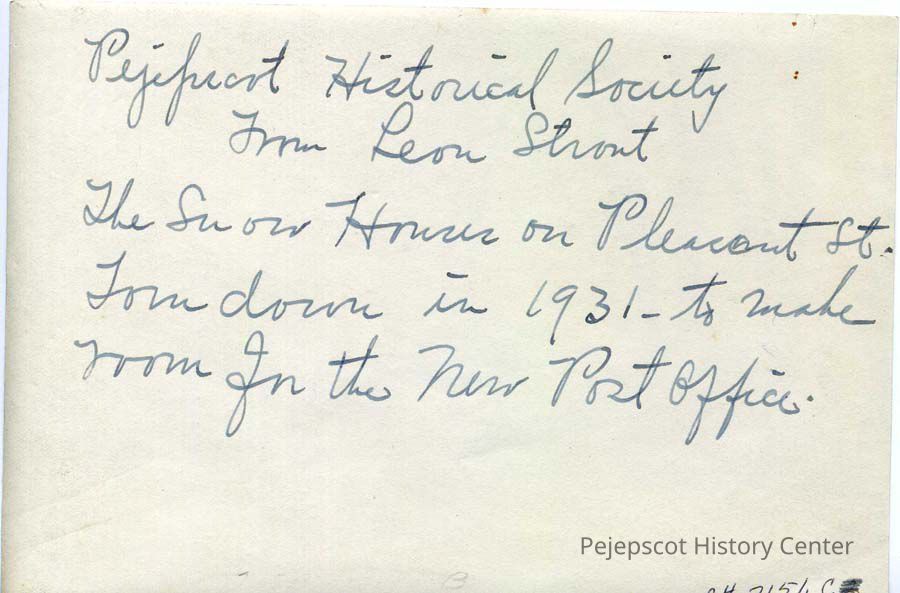 Pejepscot Historical Society
From Leon Strout
The Snow Houses on Pleasant St.
Torn down in 1931 - to make
room for the New Post Office.
Pejepscot History Center